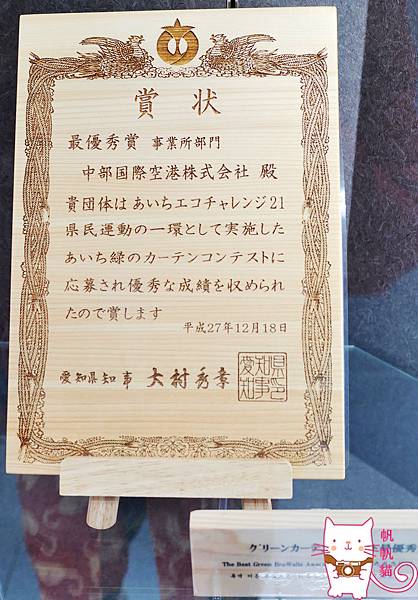 賞状
最優秀賞 事業所部門
中部国際空港株式会社 殿
貴団体は あいちエコチャレンジ21
県民運動の一環として実施した
あいち緑のカーテンコンテストに
応募され優秀な成績を収められ
たので賞します
平成27年12月18日
愛知県知事 大村秀章
愛知県知事印
グリーンカーテ
優秀
The Best Green Eco-Walls Awa
帆帆貓